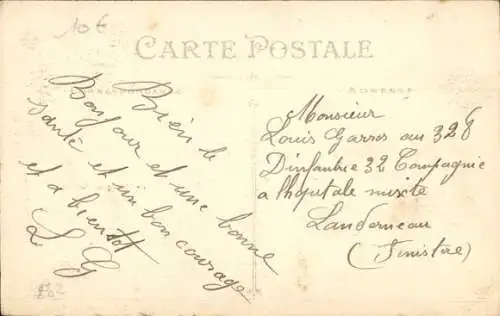 10 €
CARTE POSTALE
CORRESPONDANCE
ADRESSE
Bien le
Bonjour et une bonne
santé et un bon courage
et a bientot
L G
Monsieur
Louis Garros au 328
D'infantrie 32 Compagnie
a l'hopitale mixte
Landerneau
(Finistère)